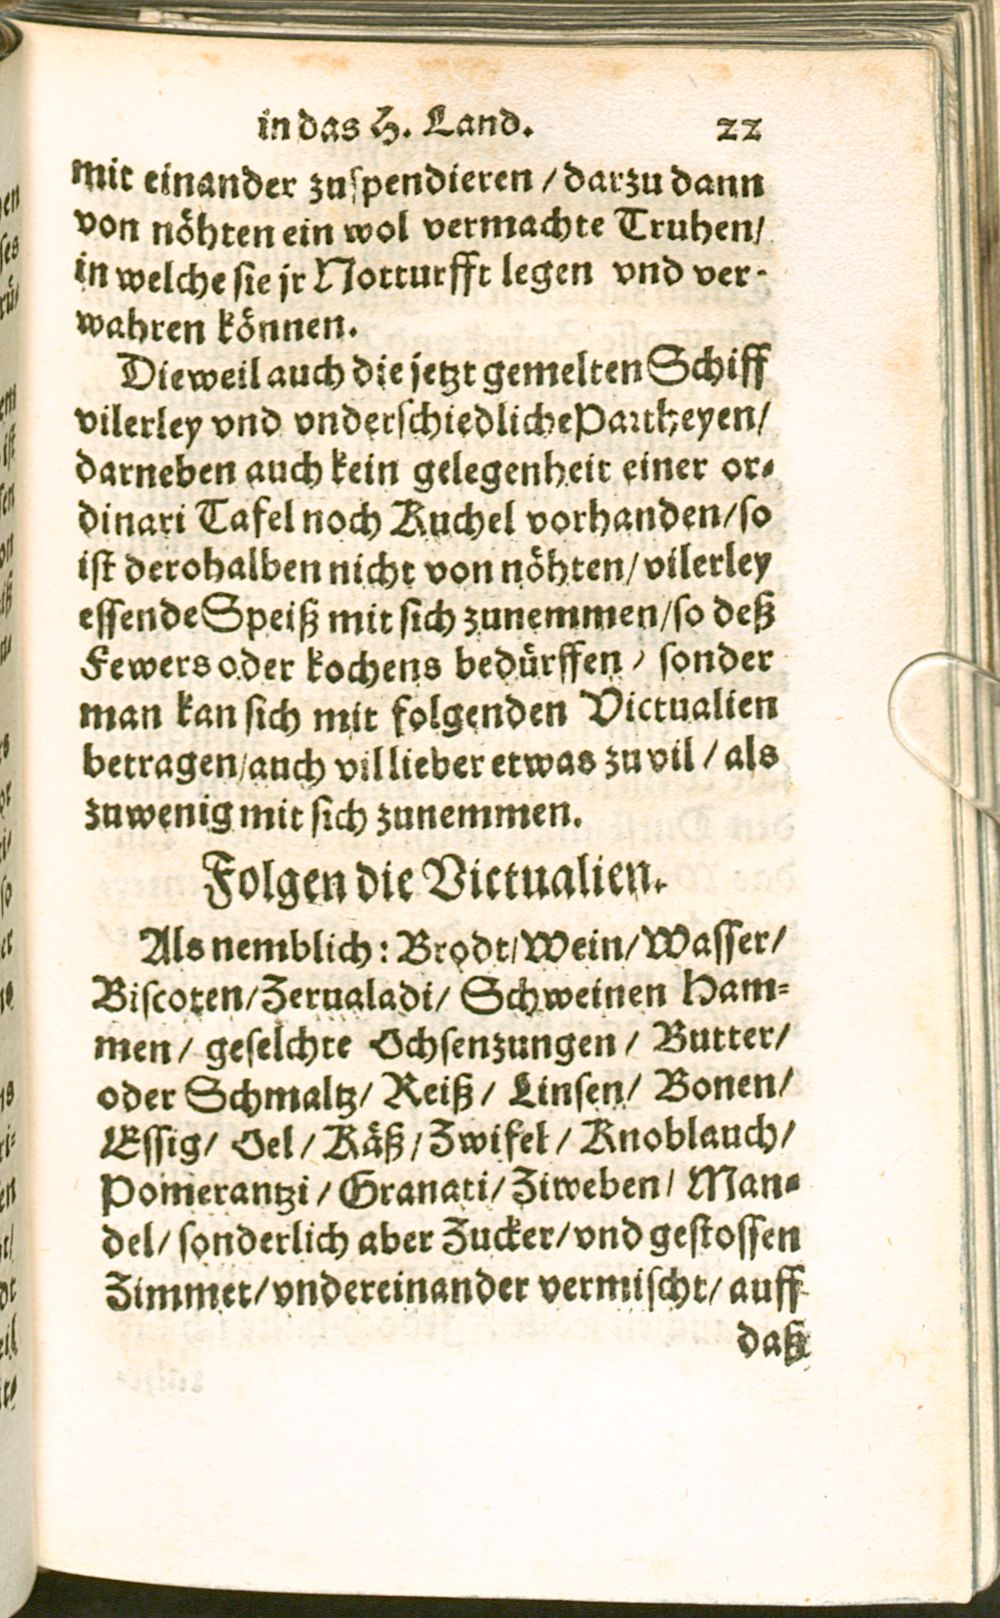 in das H. Land. 22
mit einander zuspendieren / darzu dann
von nöhten ein wol vermachte Truhen/
in welche sie jr Notturfft legen vnd ver-
wahren können.
Dieweil auch die jetzt gemelten Schiff
vilerley vnd vnderschiedliche Partheyen/
darneben auch kein gelegenheit einer or-
dinari Tafel noch Kuchel vorhanden/so
ist derohalben nicht von nöhten/vilerley
essende Speiß mit sich zunemmen/so deß
Fewers oder kochens bedürffen / sonder
man kan sich mit folgenden Victualien
betragen/auch vil lieber etwas zu vil / als
zuwenig mit sich zunemmen.
Folgen die Victualien.
Als nemblich: Brodt/Wein/Wasser/
Biscoten/Zerualadi/ Schweinen Ham-
men/ geselchte Ochsenzungen / Butter/
oder Schmaltz/ Reiß / Linsen/ Bonen/
Essig/ Oel / Käß / Zwifel / Knoblauch/
Pomerantzi / Granati/ Ziweben/ Man-
del/ sonderlich aber Zucker/vnd gestossen
Zimmet/vndereinander vermischt/ auff
daß